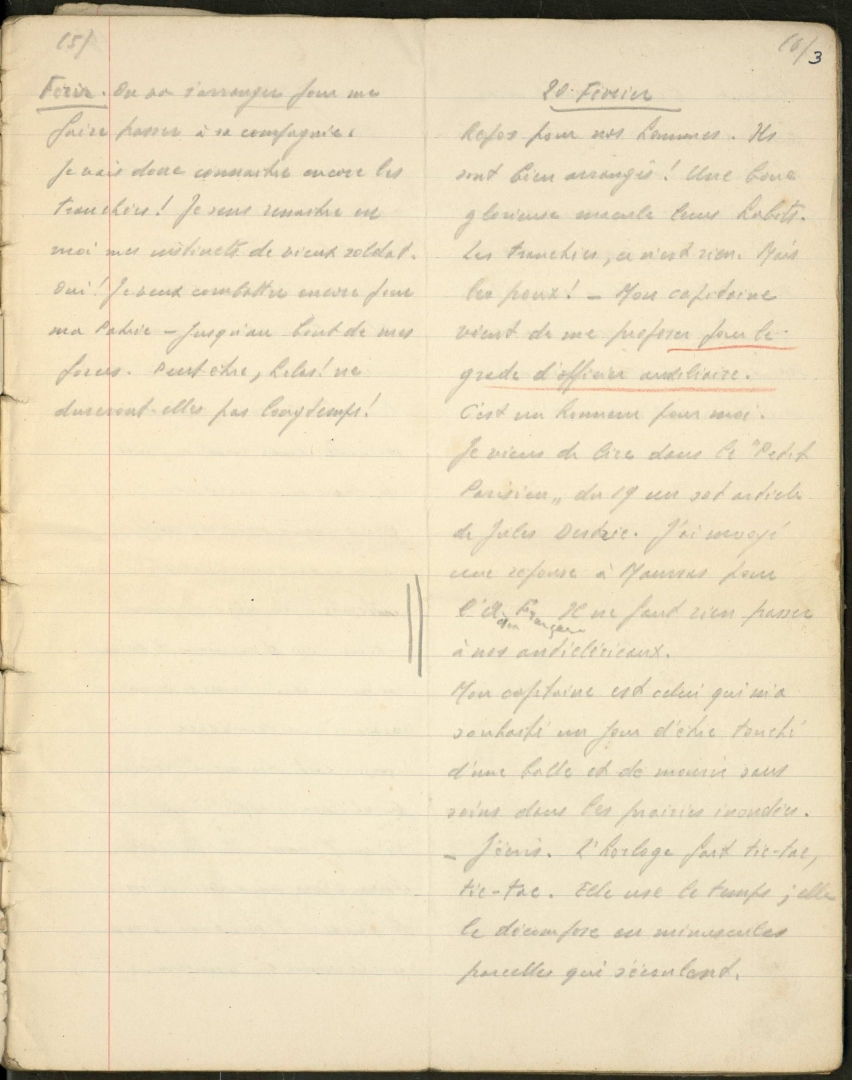 15/
Férir. On va s'arranger pour me
faire passer à sa compagnie.
Je vais donc connaître encore les
tranchées! Je sens renaître en
moi mes instincts de vieux soldat.
Oui! Je veux combattre encore pour
ma Patrie – jusqu'au bout de mes
forces. Peut être, hélas! ne
dureront-elles pas longtemps!
16/
3
20 Février
Repos pour nos hommes. Ils
sont bien arrangés! Une boue
glorieuse macule leurs habits.
Les tranchées, ce n'est rien. Mais
les poux! – Mon capitaine
vient de me proposer pour le
grade d'officier auxiliaire.
C'est un honneur pour moi.
Je viens de lire dans le "Petit
Parisien„ du 19 un sot article
de Jules Destrée. J'ai envoyé
une réponse à Maurras pour
l'A. Française. Il ne faut rien passer
à nos anticléricaux.
Mon capitaine est celui qui m'a
souhaité un jour d'être touché
d'une balle et de mourir sans
soins dans les prairies inondées.
– J'écris. L'horloge fait tic-tac,
tic-tac. Elle use le temps; elle
le décompose en minuscules
parcelles qui s'écoulent.